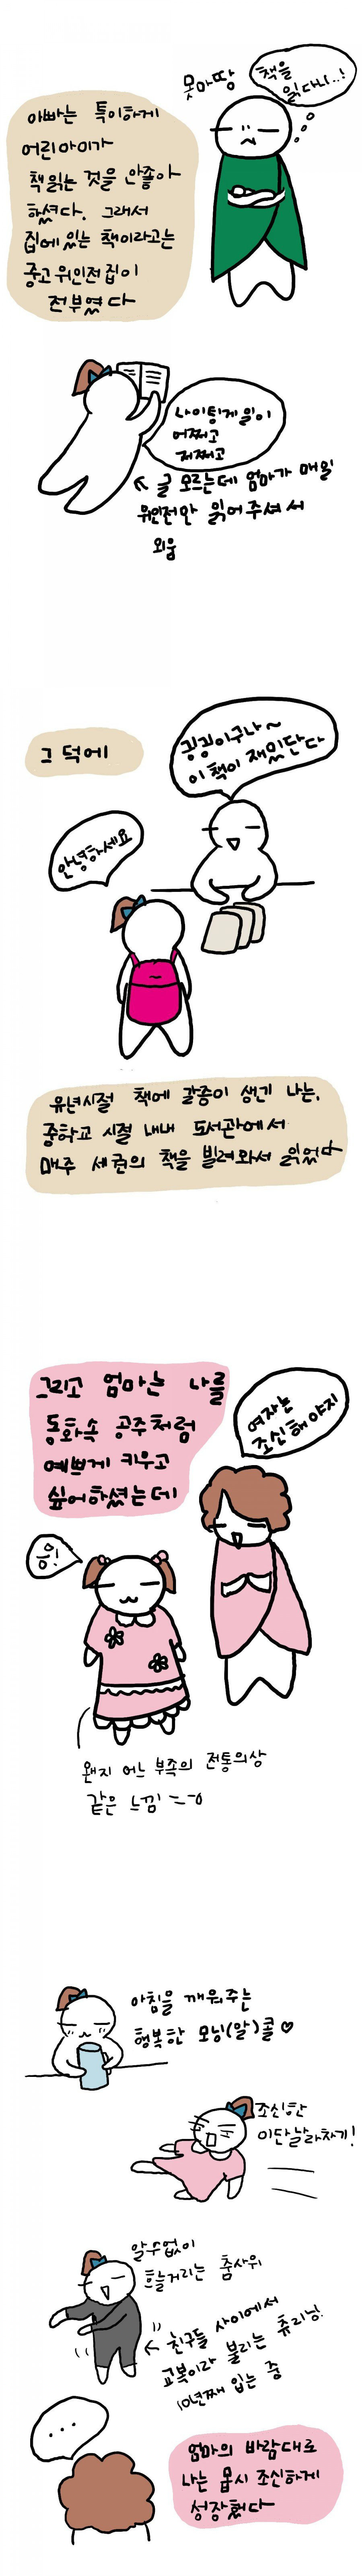 못마땅
책을
읽다니..!
아빠는 특이하게
어린아이가
책읽는 것을 안좋아
하셨다. 그래서
집에있는 책이라고는
중고위인전집이
전부였다
나이팅게일이
어쩌고
저쩌고
글 모르는데 엄마가 매일
위인전만 읽어주셔서
외움
그 덕에
이 책이 재밌단다
안녕하세요
유년시절 책에 갈증이 생긴 나는,
중학교 시절 내내 도서관에서
매주 세권의 책을 빌려와서 읽었다
그리고 엄마는 나를
동화속 공주처럼
예쁘게 키우고
싶어하셨는데
여자는
조신해야지
응!
왠지 어느 부족의 전통의상
같은 느낌
아침을 깨워주는
행복한 모닝(알)콜♡
조신한
이단날라차기!
알수없이
흐늘거리는 춤사위
친구들 사이에서
교복이라 불리는 츄리닝.
10년째 입는 중
...
엄마의 바람대로
나는 몹시 조신하게
성장했다